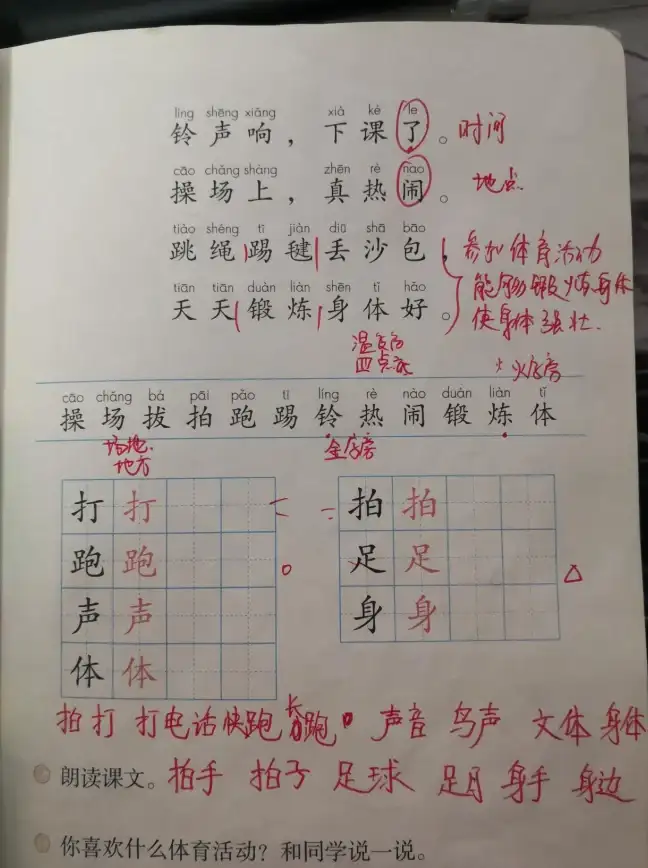 líng shēng xiǎng xià kè le
铃声响，下课了。时间
cāo chǎng shàng zhēn rè nao
操场上，真热闹。地点
tiào shéng tī jiàn diū shā bāo
跳绳踢毽丢沙包，参加体育活动
能够锻炼身体
tiān tiān duàn liàn shēn tǐ hǎo
天天锻炼身体好。使身体强壮.
四点底 火字旁
cāo chǎng bá pāi pǎo tī líng rè nào duàn liàn tǐ
操场拔拍跑踢铃热闹锻炼体
场地. 金字旁
地方
打打 拍拍
跑跑 足足
声声 身身
体体
拍打 打电话 快跑 长跑 声音 鸟声 文体 身体
朗读课文。拍手 拍子 足球 足月 身手 身边
你喜欢什么体育活动？和同学说一说。